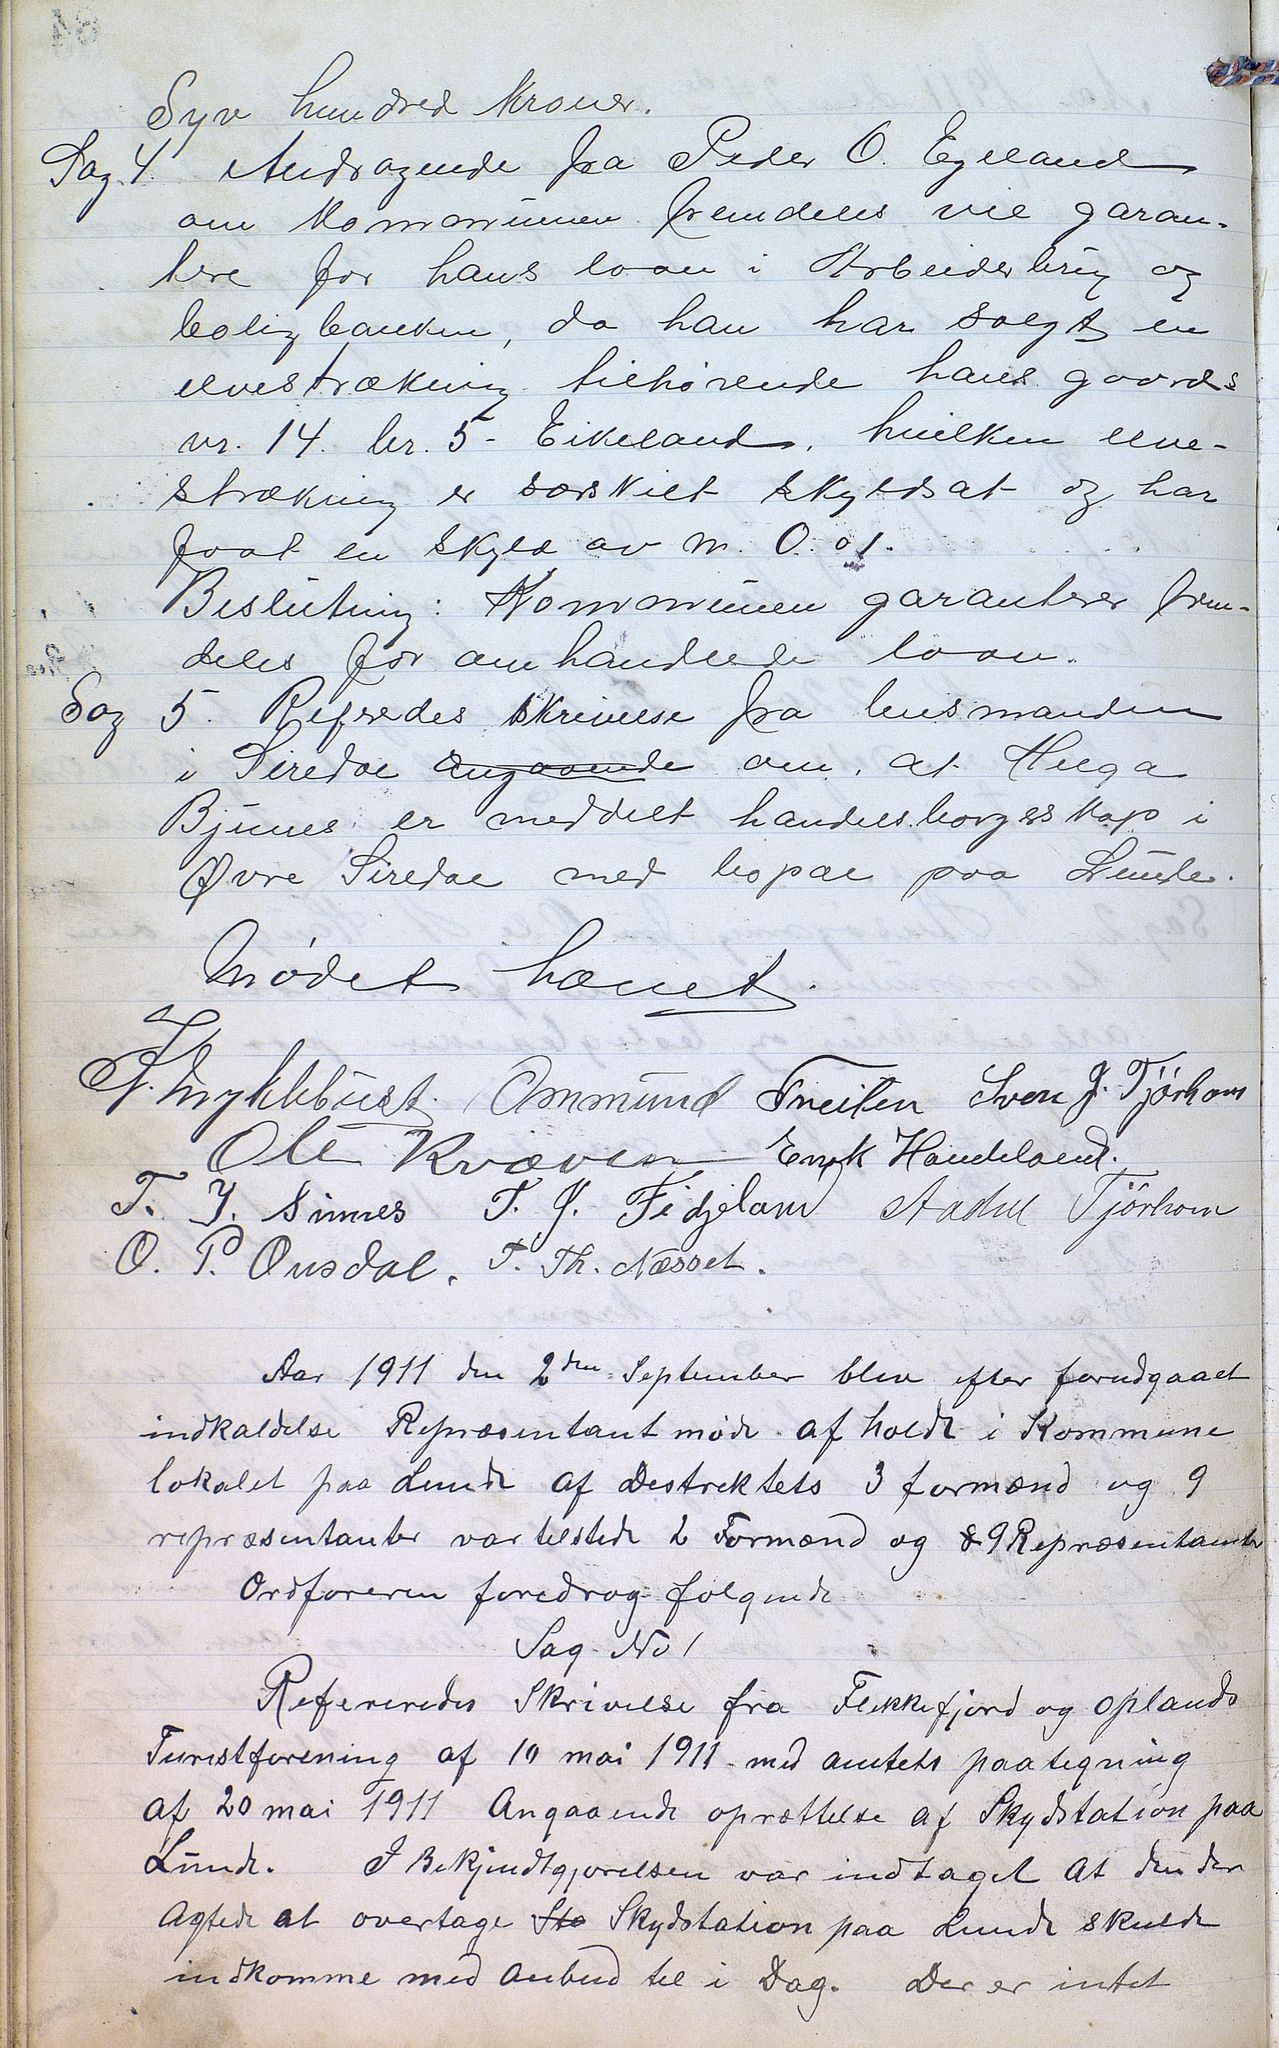 Syv hundred kroner.
Sag 4. Andragende fra Peder O. Egeland
om kommunen fremdeles vil garan-
tere for hans laan i Arbeiderbrug og
boligbanken, da han har solgt en
elvestrækning tilhørende hans gaards
nr. 14. br. 5 - Eikeland, hvilken elve-
strækning er særskilt skyldsat og har
faat en skyld av m. 0.01.
Beslutning: Kommunen garanterer frem-
deles for omhandlede laan.
Sag 5. Refredes skrivelse fra lensmanden
i Siredal angaaende om, at Helga
Bjunes er meddelt handelsborgerskap i
Øvre Siredal med bopæl paa Lunde.
Mødet hævet.
Myklebust Ommund Tveiten Sven J. Tjørhom
Ole Kvæven Enok Handeland.
T. J. Sinnes T. J. Fidjeland Aadne Tjörhom
O. P. Ousdal. T. Th. Næsset.
Aar 1911 den 2den September blev efter forudgaaet
indkaldelse Repræsentantmøde afholdt i Kommune
lokalet paa Lunde af Destrektets 3 formænd og 9
repræsentanter var tilstede 2 Formænd og 9 Repræsentanter
Ordføreren foredrog følgende
Sag No 1
Refereredes Skrivelse fra Flekkefjord og oplands
Turistforening af 10 mai 1911 med amtets paategning
af 20 mai 1911 Angaaende oprættelse af Skydstation paa
Lunde. I Bekjendtgjørelsen var indtaget At den der
Agtede at overtage Sta Skydstation paa Lunde skulde
indkomme med Anbud til i Dag. Der er intet